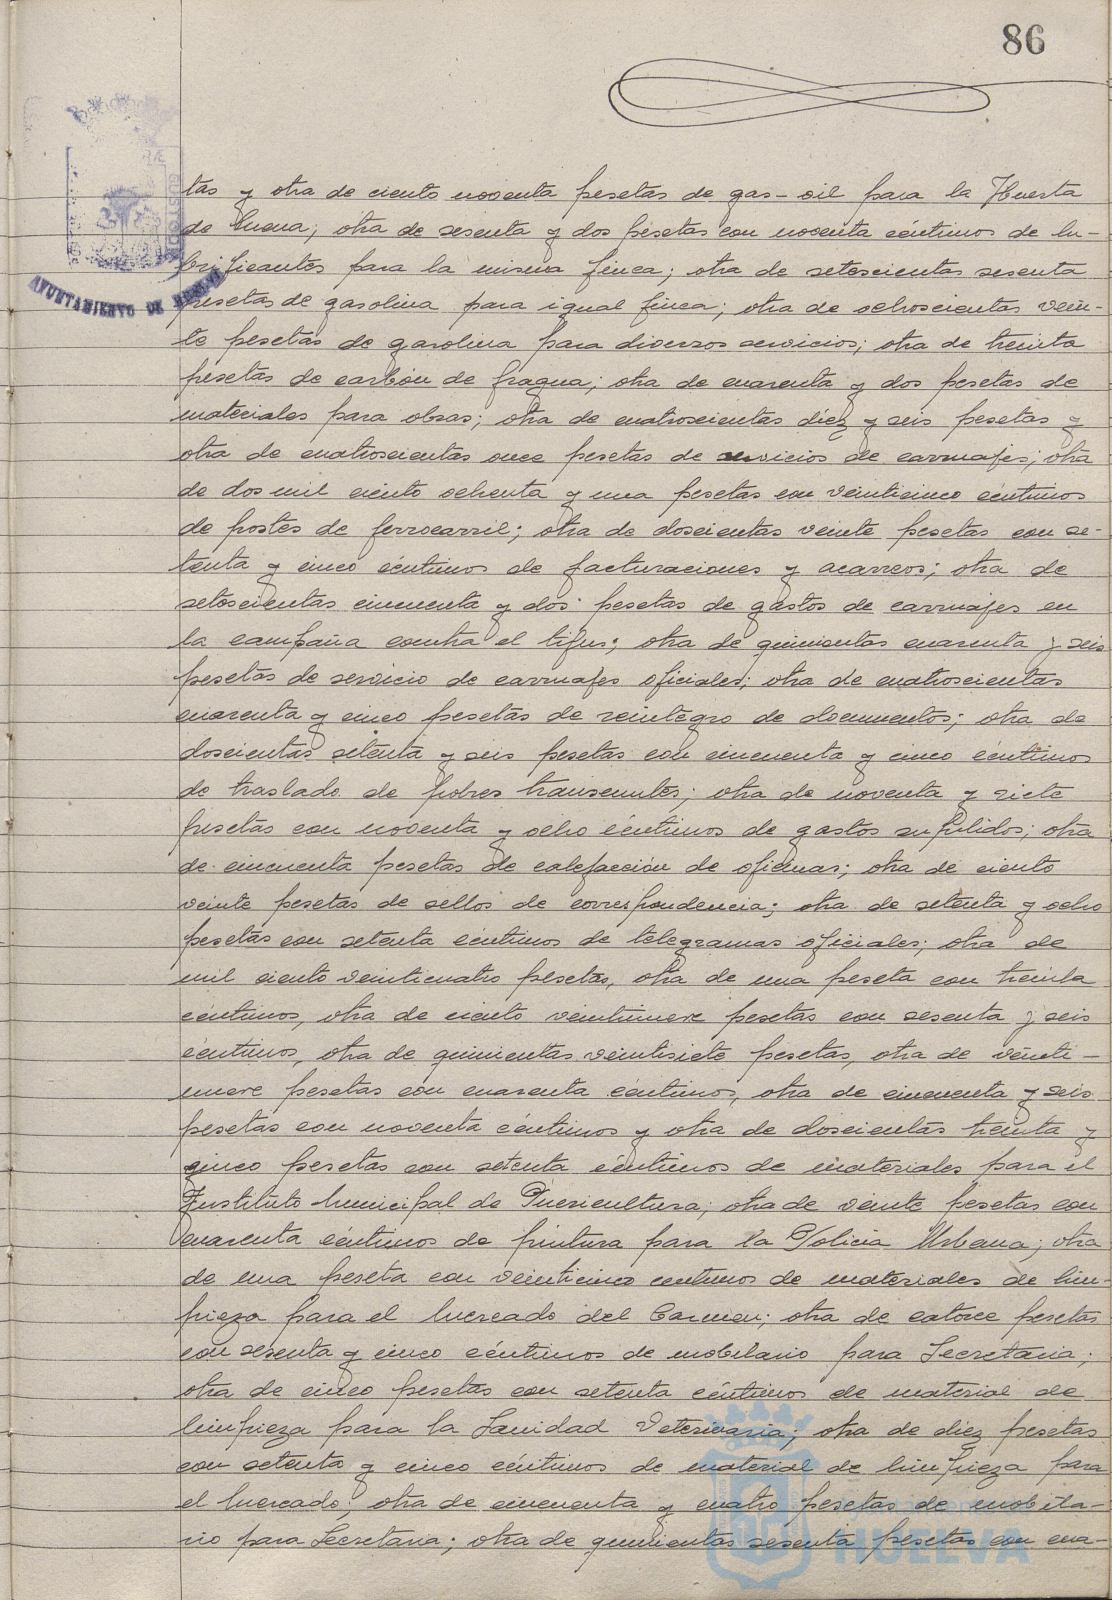 86
AYUNTAMIENTO DE HUELVA
tas y otra de ciento noventa pesetas de gas-oil para la Huerta
de Mena; otra de sesenta y dos pesetas con noventa céntimos de lu-
brificantes para la misma finca; otra de setescientas sesenta
pesetas de gasolina para igual finca; otra de ochoscientas vein-
te pesetas de gasolina para diversos servicios; otra de treinta
pesetas de carbón de fragua; otra de cuarenta y dos pesetas de
materiales para obras; otra de cuatroscientas diez y seis pesetas y
otra de cuatroscientas once pesetas de servicios de carruajes; otra
de dos mil ciento ochenta y una pesetas con veinticinco céntimos
de portes de ferrocarril; otra de doscientas veinte pesetas con se-
tenta y cinco céntimos de facturaciones y acarreos; otra de
setoscientas cincuenta y dos pesetas de gastos de carruajes en
la campaña contra el tifus; otra de quinientas cuarenta y seis
pesetas de servicio de carruajes oficiales; otra de cuatroscientas
cuarenta y cinco pesetas de reintegro de documentos; otra de
doscientas setenta y seis pesetas con cincuenta y cinco céntimos
de traslado de pobres transeuntes; otra de noventa y siete
pesetas con noventa y ocho céntimos de gastos suplidos; otra
de cincuenta pesetas de calefacción de oficinas; otra de ciento
veinte pesetas de sellos de correspondencia; otra de setenta y ocho
pesetas con setenta céntimos de telegramas oficiales; otra de
mil ciento veinticuatro pesetas, otra de una peseta con treinta
céntimos, otra de ciento veintinueve pesetas con sesenta y seis
céntimos, otra de quinientas veintisiete pesetas, otra de veinti-
nueve pesetas con cuarenta céntimos, otra de cincuenta y seis
pesetas con noventa céntimos y otra de doscientas treinta y
cinco pesetas con setenta céntimos de materiales para el
Instituto Municipal de Puericultura; otra de veinte pesetas con
cuarenta céntimos de pintura para la Policia Urbana; otra
de una peseta con veinticinco centimos de materiales de lim-
pieza para el Mercado del Carmen; otra de catorce pesetas
con sesenta y cinco céntimos de mobilario para Secretaria;
otra de cinco pesetas con setenta céntimos de material de
limpieza para la Sanidad Veterinaria; otra de diez pesetas
con setenta y cinco céntimos de material de limpieza para
el Mercado; otra de cincuenta y cuatro pesetas de mobila-
rio para Secretaria; otra de quinientas sesenta pesetas con cua-
HUELVA